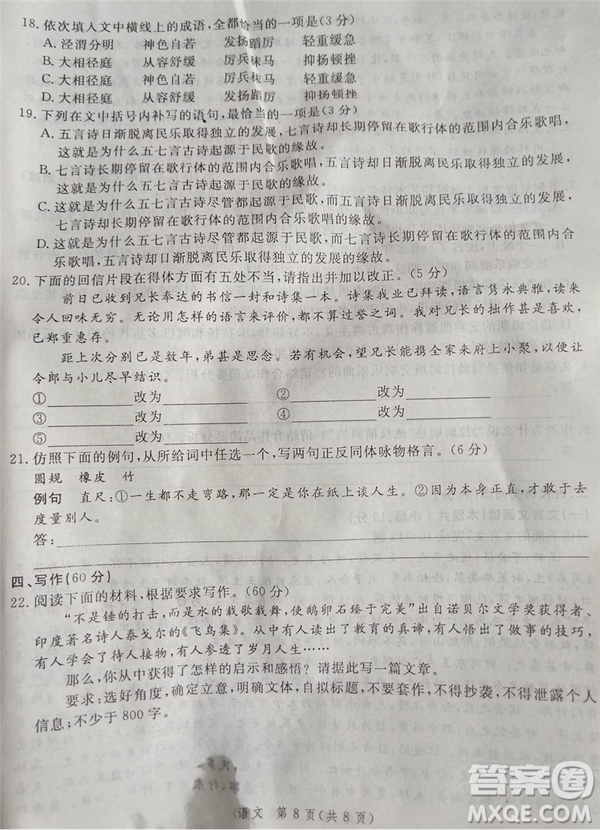 18. 依次填入文中横线上的成语，全都恰当的一项是(3 分)
A. 泾渭分明 神色自若 发扬蹈厉 轻重缓急
B. 大相径庭 从容舒缓 厉兵秣马 抑扬顿挫
C. 大相径庭 神色自若 厉兵秣马 轻重缓急
D. 大相径庭 从容舒缓 发扬蹈厉 抑扬顿挫
19. 下列在文中括号内补写的语句，最恰当的一项是(3 分)
A. 五言诗日渐脱离民乐取得独立的发展，七言诗却长期停留在歌行体的范围内合乐歌唱，
这就是为什么五七言古诗起源于民歌的缘故。
B. 七言诗长期停留在歌行体的范围内合乐歌唱，五言诗却日渐脱离民乐取得独立的发展，
这就是为什么五七言古诗起源于民歌的缘故。
C. 这就是为什么五七言古诗尽管都起源于民歌，五言诗却日渐脱离民乐取得独立的发展，
七言诗却长期停留在歌行体的范围内合乐歌唱的缘故。
D. 这就是为什么五七言古诗尽管都起源于民歌，而七言诗却长期停留在歌行体的范围内合
乐歌唱，五言诗日渐脱离民乐取得独立的发展的缘故。
20. 下面的回信片段在得体方面有五处不当，请指出并加以改正。(5 分)
前日已收到兄长奉达的书信一封和诗集一本。诗集我业已拜读，语言隽永典雅，读来
令人回味无穷。无论用怎样的语言来评价，都不算过誉之词。我对兄长的拙作甚是喜爱，
已郑重惠存。
距上次分别已是数年，弟甚是思念。若有机会，望兄长能携全家来府上小聚，以此让
令郎与小儿尽早结识。
①改为②改为
③改为④改为
⑤改为
21. 仿照下面的例句，从所给词中任选一个，写两句正反同体咏物格言。(6 分)
圆规 橡皮 竹
例句 直尺：①一生都不走弯路，那一辈子只能纸上谈人生。②因为本身正直，才敢于去
度量别人。
答：
四、写作(60 分)
22. 阅读下面的材料，根据要求写作。(60 分)
“不是锤的打击，而是水的载歌载舞，使鹅卵石臻于完美”出自诺贝尔文学奖获得者、
印度著名诗人泰戈尔的《飞鸟集》。从中有人读出了教育的真谛，有人悟出了做事的原则，
有人学会了待人接物，有人参透了岁月人生……
那么，你从中获得了怎样的启示和感悟？请据此写一篇文章。
要求：选好角度，明确文体，自拟标题，不要套作，不得抄袭，不得泄露个人
信息；不少于 800 字。
语文 第 8 页(共 8 页)
答案圈
MXQE.COM